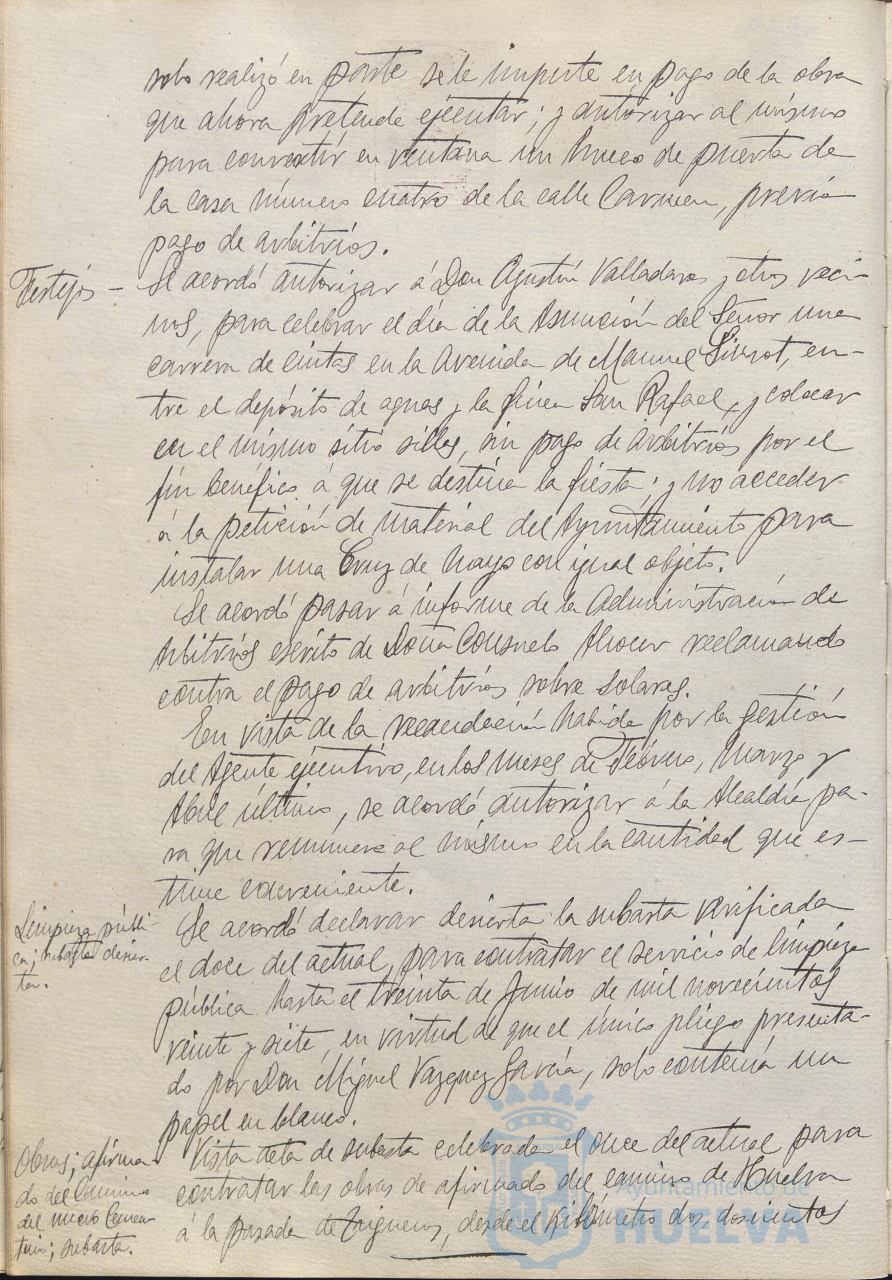 solo realizó en parte se le impute en pago de la obra
que ahora pretende ejecutar; y autorizar al mismo
para convertir en ventana un hueco de puerta de
la casa número cuatro de la calle Carmen, previo
pago de arbitrios.
Festejos – Se acordó autorizar á Don Agustín Valladares y otros veci-
nos, para celebrar el día de la Asunción del Señor una
carrera de cintas en la Avenida de Manuel Siurot, en-
tre el depósito de aguas y la finca San Rafael, y colocar
en el mismo sitio sillas, sin pago de arbitrios por el
fin benéfico á que se destina la fiesta; y no acceder
á la petición de material del Ayuntamiento para
instalar una Cruz de Mayo con igual objeto.
Se acordó pasar á informe de la Administración de
Arbitrios escrito de Doña Consuelo reclamando
contra el pago de arbitrios sobre solares.
En vista de la recaudación habida por la gestión
del Agente ejecutivo, en los meses de Febrero, Marzo y
Abril último, se acordó autorizar á la Alcaldía pa-
ra que remunere al mismo en la cantidad que es-
time conveniente.
Limpieza públi-
ca; subasta desier-
ta.
Se acordó declarar desierta la subasta verificada
el doce del actual, para contratar el servicio de limpieza
pública hasta el treinta de Junio de mil novecientos
veinte y siete, en virtud de que el único pliego presenta-
do por Don Miguel Vazquez García, solo contenía un
papel en blanco.
Obras; afirma-
do del Camino
del nuevo Cemen-
terio; subasta.
Vista acta de subasta celebrada el once del actual para
contratar las obras de afirmado del camino de Huelva
á la pasada de Trigueros, desde el kilómetro dos, doscientos
Ayuntamiento de
HUELVA